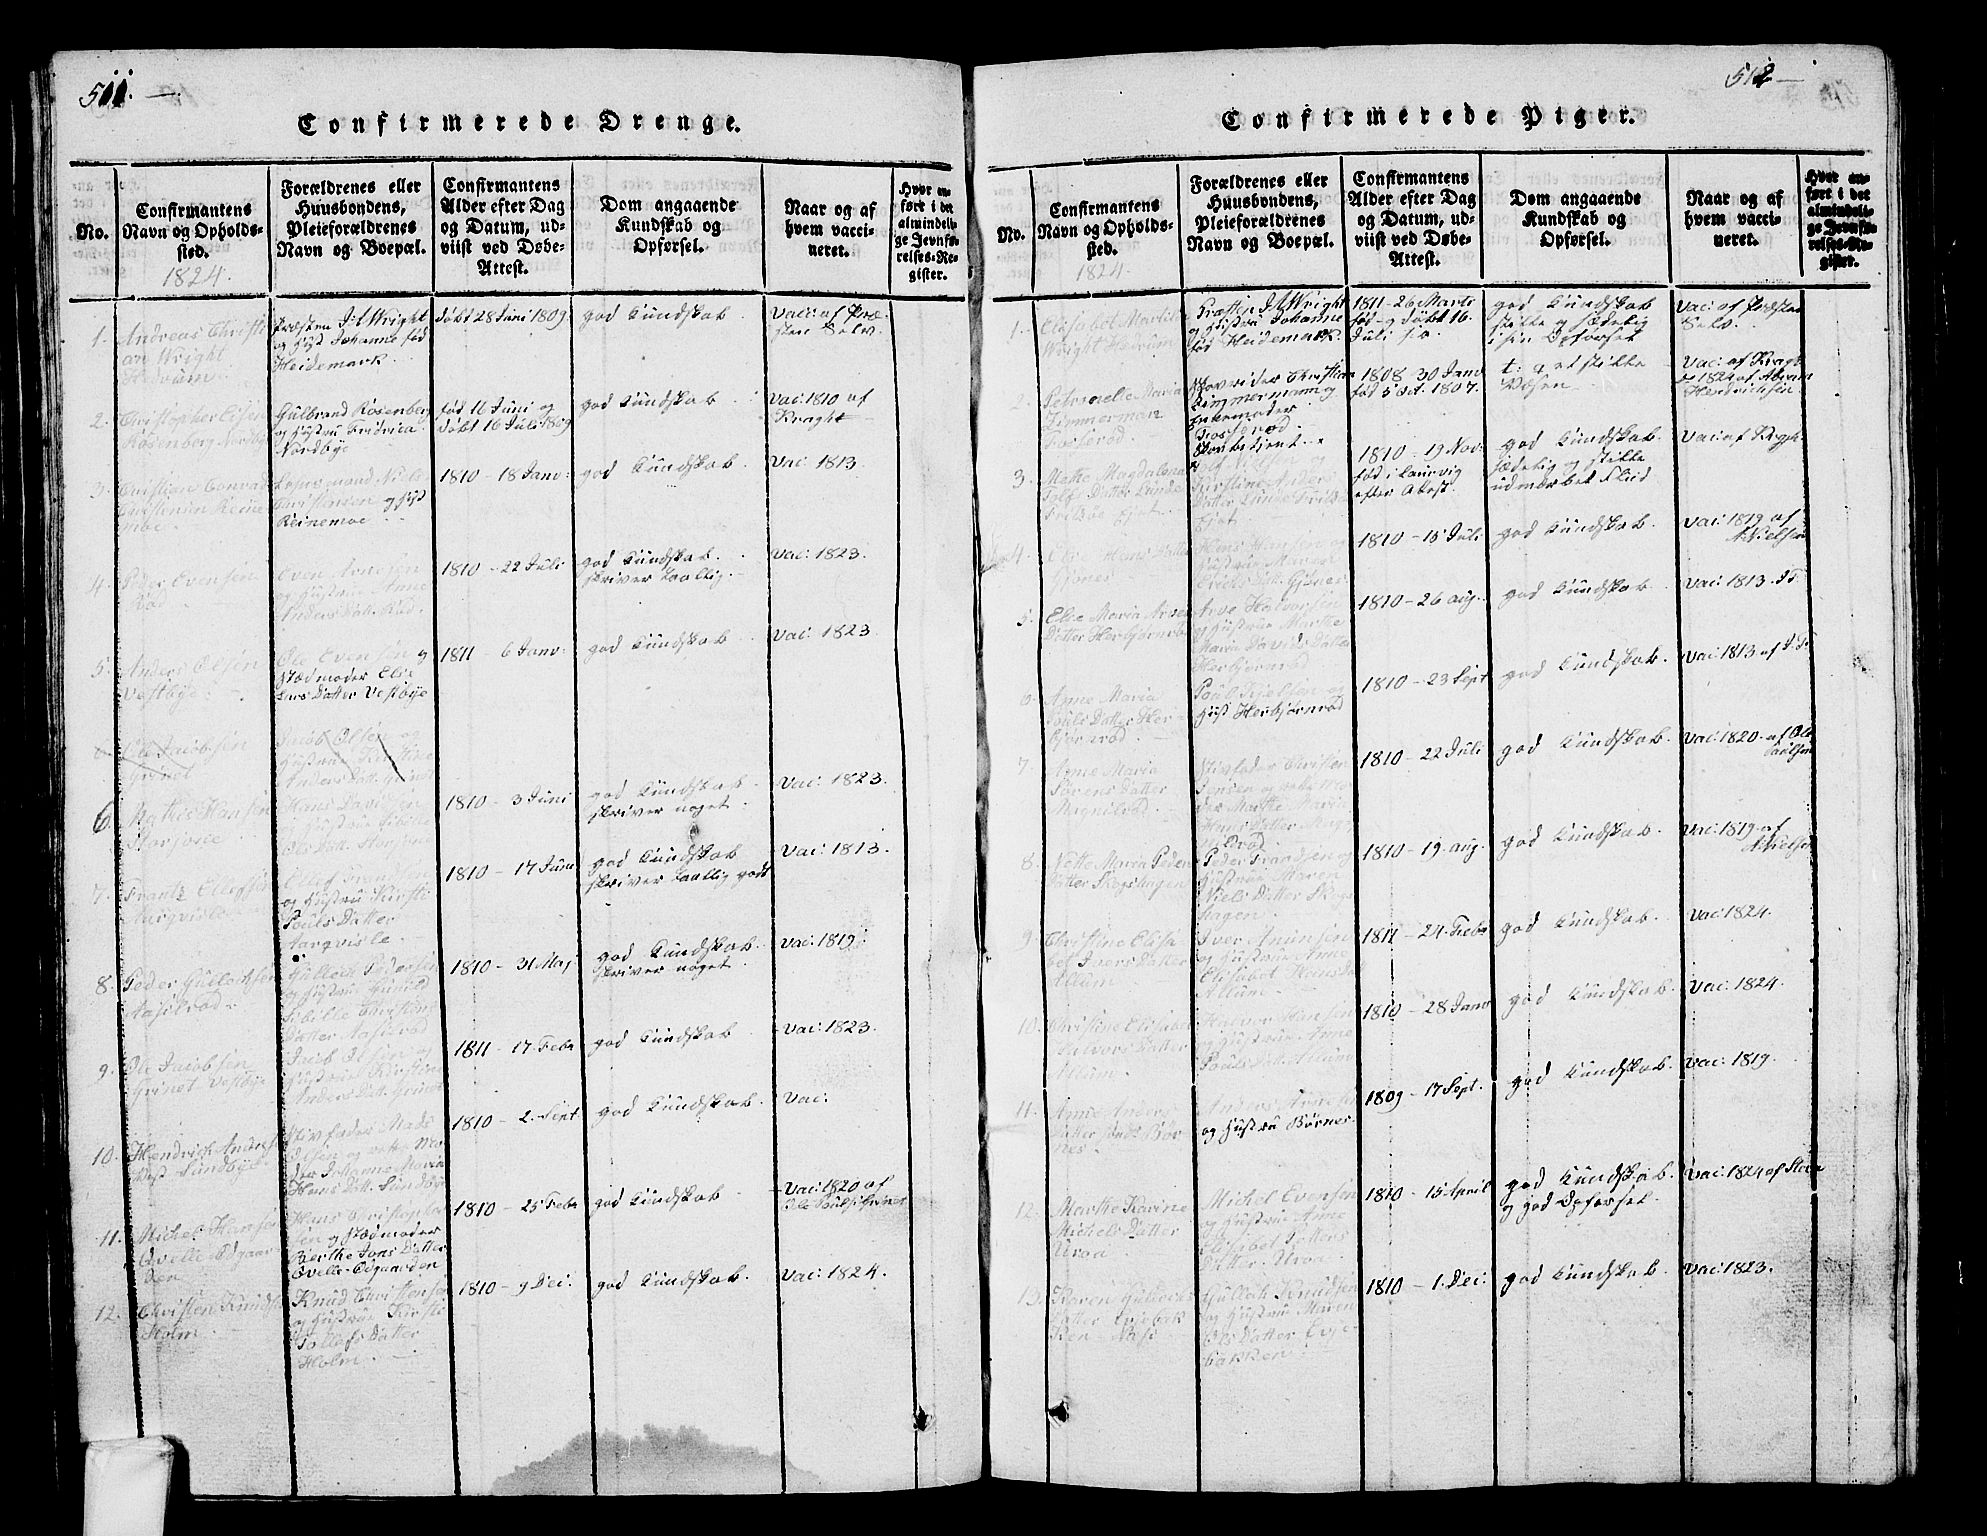 511. —
Confirmerede Drenge.
No.
Confirmantens
Navn og Opholds-
sted.
1824.
Forældrenes eller
Huusbondens,
Pleieforældrenes
Navn og Boepæl.
Confirmantens
Alder efter Dag
og Datum, ud-
viist ved Døbe-
Attest.
Dom angaaende
Kundskab og
Opførsel.
Naar og af
hvem vacci-
neret.
Hvor an-
ført i det
almindeli-
ge Jevnfø-
relses-Re-
gister.
1.
Andreas Christi
an Wright
Hedrum
Præsten J. A. Wright
og Hust Johanne fød
Heidemark.
døbt 28 Juni 1809
god Kundskab
Vacc: af Præ-
sten Selv.
2.
Christopher Olsen
Rosenberg Nordbye
Gulbrand Rosenberg
og Hustru Fridrica
Nordbye
fød 16 Juni og
døbt 16 Juli 1809
god Kundskab
Vac: 1810 af
Kraght
3.
Christian Conrad
Christensen Reine
moe.
Christensen og Hust
Reinemoe
1810 - 18 Janv:
god Kundskab.
Vac: 1813.
4.
Peder Evensen
Rød
Even Arnesen
og Hustru Anne
Anders Datt. Rød.
1810 - 22 Juli
god Kundskab.
skriver taallig.
Vac: 1823.
5.
Anders Olsen
Vestbye.
Ole Evensen og
Stedmoder Elie
Lars Datter Vestbye
1811 - 6 Janv:
god Kundskab
Vac: 1823.
6
Ole Jacobsen
Grinet
Jacob Olsen og
Hustru Kirstine
Anders Datt. Grinet
6.
Mathis Hansen
Storjorce
Hans Davidsen
og Hustru Sibille
Ols Datt. Storjorce
1810 - 3 Juni
god Kundskab
skriver noget.
Vac: 1823.
7.
Frantz Ellefsen
Aarqvisle
Ellef Frandsen
og Hustru Kirsti
Pouls Datter
Aarqvisle.
1810 - 17 Juni
god Kundskab
skriver taallig godt
Vac: 1813.
8.
Peder Gulleichsen
Aasilrød
Gulleich Pedersen
og Hustru Gunild
Sibille Christens
Datter Aasilrød
1810 - 31 Maj
god Kundskab.
skriver noget.
Vac: 1819
9.
Ole Jacobsen
Grinet Vestbye
Jacob Olsen og
Hustru Kirstine
Anders Datt. Grinet
1811 - 17 Feb
god Kundskab
Vac: 1823.
10.
Hendrich Anders
Sundbye
Stivfader Mads
Olsen og rette Mo
der Johanne Maria
Hans Datt. Sundbye
1810 - 2. Sept.
god Kundskab.
Vac:
11.
Michel Hansen
Qvelle Odgaar-
den
Hans Christophe
sen og Stedmoder
Berthe Jons Datter
Qvelle-Odgaarden
1810 - 25 Feb
god Kundskab
Vac: 1820 af
Ole Pouls: Grinet
12.
Christen Knuds
Holm
Knud Christensen
og Hustru Kirsti
Tollefs Datter
Holm.
1810 - 9 Dec:
god Kundskab.
Vac: 1824.
512 —
Confirmerede Piger.
No.
Confirmantens
Navn og Opholds-
sted.
1824.
Forældrenes eller
Huusbondens,
Pleieforældrenes
Navn og Boepæl.
Confirmantens
Alder efter Dag
og Datum, ud-
viist ved Døbe-
Attest.
Dom angaaende
Kundskab og
Opførsel.
Naar og af
hvem vacci-
neret.
Hvor an-
ført i det
almindeli-
ge Jevnfø-
relses-Re-
gister.
1.
Elisabet
Wright Hedrum
Præsten J. A. Wright
og Hustru Johanne
fød Heidemark.
1811 - 26 Marts
fød - og døbt 16.
Juli
god Kundskab
stille og sædelig
i sin Opførsel
Vac: af Præsten
Selv.
2.
Petronelle Maria
Zimmerman
Fosserød.
Skovrider Christian
Zimmermann og
Fosserød
1808 - 30 Janv
fød 5 Oct. 1807.
et stille
Væsen
Vac: af Kragh
1824 af Abram
Hendrichsen
3.
Mette Magdalena
Tolf Datter Lunde
Fritzøe Ejet.
Kirstine Anders
Datter Lunde Fritz
Ejet.
1810 - 19 Nov.
fød i Laurvig
efter Atest.
god Kundskab.
sædelig og stille
udmærket Fliid
Vac: af Kragh
4.
Elie Hans Datter
Gjønes
Hans Hansen og
Hustrue Maren
Erichs Datt. Gjønes
1810 - 15 Juli
god Kundskab.
Vac: 1819 af
A. Nielsen
5.
Elie Maria Arve
Datter Herbjørnrød
Arve Halvorsen
og Hustrue Marthe
Maria Davids Datter
Herbjørnrød
1810 - 26 Aug.
god Kundskab
Vac: 1813.
6.
Anne Maria
Pouls Datter Her-
bjørnrød
Poul
Hust Herbjørnrød
1810 - 23 Sept
god Kundskab.
Vac: 1813 af
7.
Anne Maria
Sørens Datter
Magnilrød
Stivfader Christen
Jensen og rette Mo
der Marthe Maria
Hans Datter Mag-
nilrød
1810 - 22 Juli
god Kundskab.
Vac: 1820 af Ole
Poulsen
8
Mette Maria Peders
Datter Skogshagen
Peder Frandsen og
Hustrue Maren
Niels Datter Skogs
hagen
1810 - 19. Aug.
god Kundskab.
Vac: 1819 af
A. Nielsen
9
Christine Elisa-
bet Ivers Datter
Allum
Iver Amunsen
og Hustrue Anne
Elisabet Hans D.
Allum.
1811 - 24. Feb
god Kundskab.
Vac: 1824.
10.
Christine Elisabet
Halvors Datter
Allum
Halvor Hansen
og Hustrue Anne
Pouls Datt. Allum
1810 - 28 Janv
god Kundskab.
Vac: 1824.
11.
Anne Anders
Datter Bør-
nes.
Anders Arnesen
og Hustru Børnes.
1809 - 17 Sept.
god Kundskab.
Vac: 1819.
12.
Marthe Karine
Michels Datter
Uroa
Michel Evensen
og Hustrue Anne
Elisabet Peders
Datter. Uroa
1810 - 15 April
god Kundskab.
og god Opførsel.
Vac: 1824 af
13.
Karen Gulleichs
Datter Evjebak
ken
Gulleich Knudsen
og Hustrue Maren
Ols Datter Evje-
bakken.
1810 - 1. Dec:
god Kundskab.
Vac: 1823.